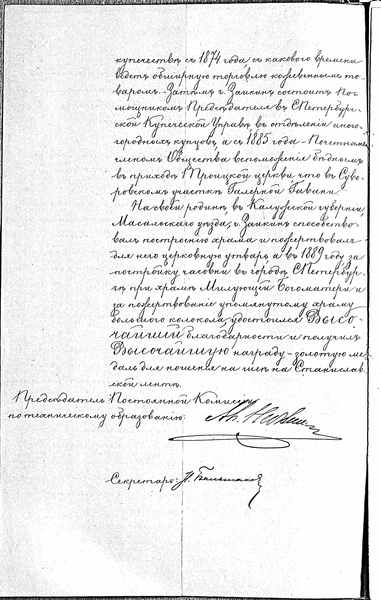 купечествѣ съ 1874 года, съ каковаго времени
ведетъ обширную торговлю кожевеннымъ то-
варомъ.- Затѣмъ г. Заикинъ состоитъ По-
мощникомъ Предсѣдателя въ СПетербург-
ской Купеческой Управѣ въ отдѣленіи иного-
городныхъ купцовъ, а съ 1885 года - Почетнымъ
членомъ Общества вспоможенія бѣднымъ
въ приходѣ Троицкой церкви что въ Суво-
ровскомъ участкѣ Галерной Гавани.
На своей родинѣ, въ Калужской губерніи
Масальскаго уѣзда, г. Заикинъ способство-
валъ построенію храма и пожертвовалъ
для него церковную утварь, а въ 1889 году за
постройку часовни въ городѣ СПетербур-
гѣ при храмѣ Милующей Богоматери и
за пожертвованіе упомянутому храму
большого колокола, удостоился Высо-
чайшей благодарности и получилъ
Высочайшую награду - золотую ме-
даль для ношенія на шеѣ на Станислав-
ской лентѣ.
Предсѣдатель Постоянной Комисіи
по техническому образованію:
Секретарь: